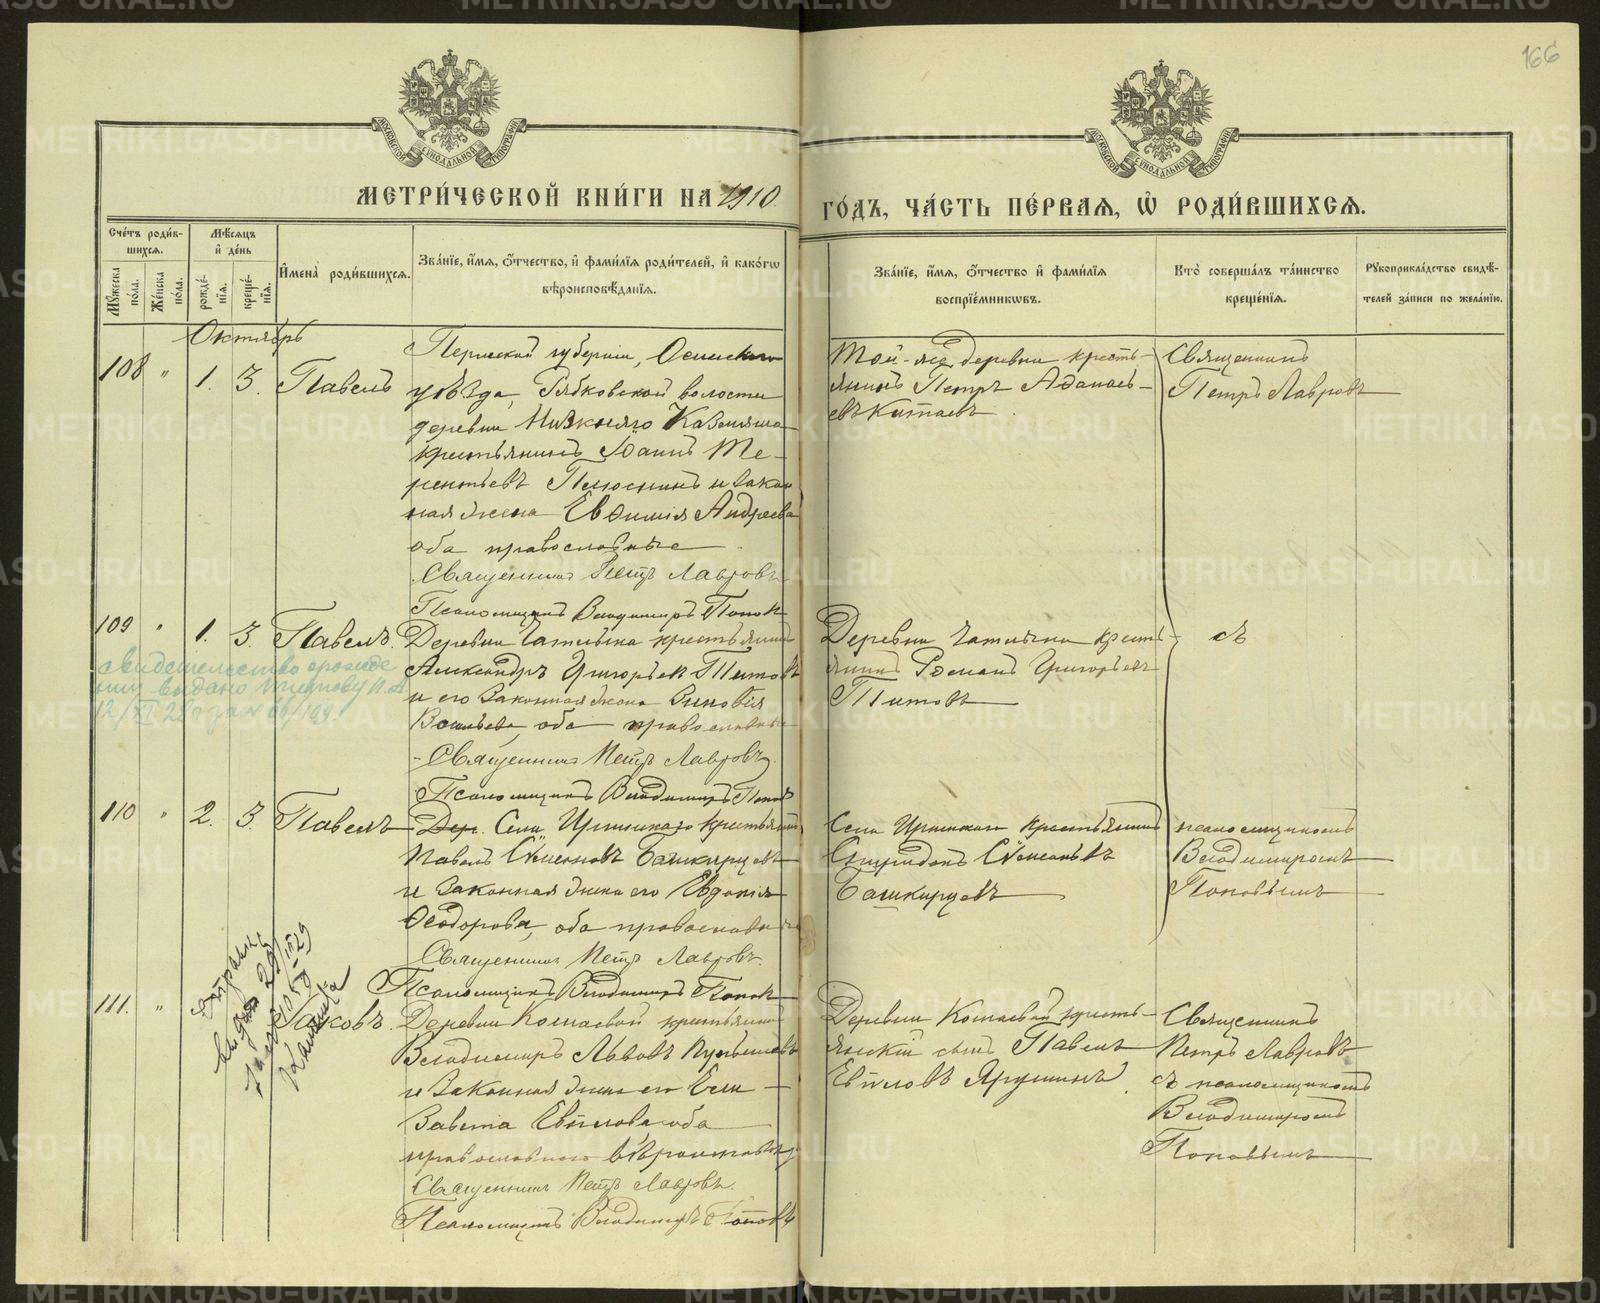 166
МОСКОВСКОЙ СѴНОДАЛЬНОЙ ТИПОГРАФІИ
МОСКОВСКОЙ СѴНОДАЛЬНОЙ ТИПОГРАФІИ
МЕТРИ́ЧЕСКОЙ КНИ́ГИ НА 1910
ГО́ДЪ, ЧА́СТЬ ПЕ́РВАѦ, Ѡ҆ РОДИ́ВШИХСѦ.
Сче́тъ роди́в-
шихсѧ.
Мꙋ́жеска по́ла.
Же́нска по́ла.
Мѣ́сѧцъ
и҆ де́нь
рожде́-
нїѧ.
креще́-
нїѧ.
И҆мена̀ роди́вшихсѧ.
Зва́нїе, и҆́мѧ, ѻ҆́тчество, и҆ фами́лїѧ роди́телей, и҆ како́гѡ
вѣроисповѣ́данїѧ.
Зва́нїе, и҆́мѧ, ѻ҆́тчество и҆ фами́лїѧ
воспрїе́мникѡвъ.
Кто̀ соверша́лъ та́инство
креще́нїѧ.
Рꙋкоприкла́дство свидѣ́-
телей за́писи по жела́нїю.
Октябрь
108 " 1. 3. Павелъ
Пермской губерніи, Осинскаго
уѣзда, Рябковской волости
деревни Нижняго Казмяша
крестьянинъ Іоаннъ Те-
рентьевъ Пелюснинъ и закон
ная жена Евѳимія Андреева
оба православные
Священникъ Петръ Лавровъ
Псаломщикъ Владимиръ Поповъ
Той-же деревни кресть-
янинъ Петръ Аѳанась-
евъ Китаевъ
Священникъ
Петръ Лавровъ
109 " 1. 3. Павелъ.
Деревни Чатлыка крестьянинъ
Александръ Григорьевъ Титовъ
и его законная жена Зиновія
Васильева, оба православные
Священникъ Петръ Лавровъ
Псаломщикъ Владимиръ Поповъ
свидетельство о рожде
нии выдано
Деревни Чатлыка кресть-
янинъ Романъ Григорьевъ
Титовъ
съ
110 " 2. 3. Павелъ
Дер. Села Иргинскаго крестьянинъ
Павелъ Сѵмеоновъ Башкирцевъ
и законная жена его Евдокія
Ѳеодорова, оба православные
Священникъ Петръ Лавровъ.
Псаломщикъ Владимиръ Поповъ
Села Иргинскаго крестьянинъ
Спиридонъ Сѵмеоновъ
Башкирцевъ
псаломщикомъ
Владимиромъ
Поповымъ
111. " Іаковъ.
Деревни Копаевой крестьянинъ
Владимиръ Львовъ
и законная жена его Ели-
завета Евѳилова оба
православнаго вѣроисповѣд.
Священникъ Петръ Лавровъ.
Псаломщикъ Владимиръ Поповъ
Деревни Копаевой кресть-
янскій сынъ Павелъ
Евѳиловъ Ярушинъ
Священникъ
Петръ Лавровъ
съ псаломщикомъ
Владимиромъ
Поповымъ
METRIKI.GASO-URAL.RU